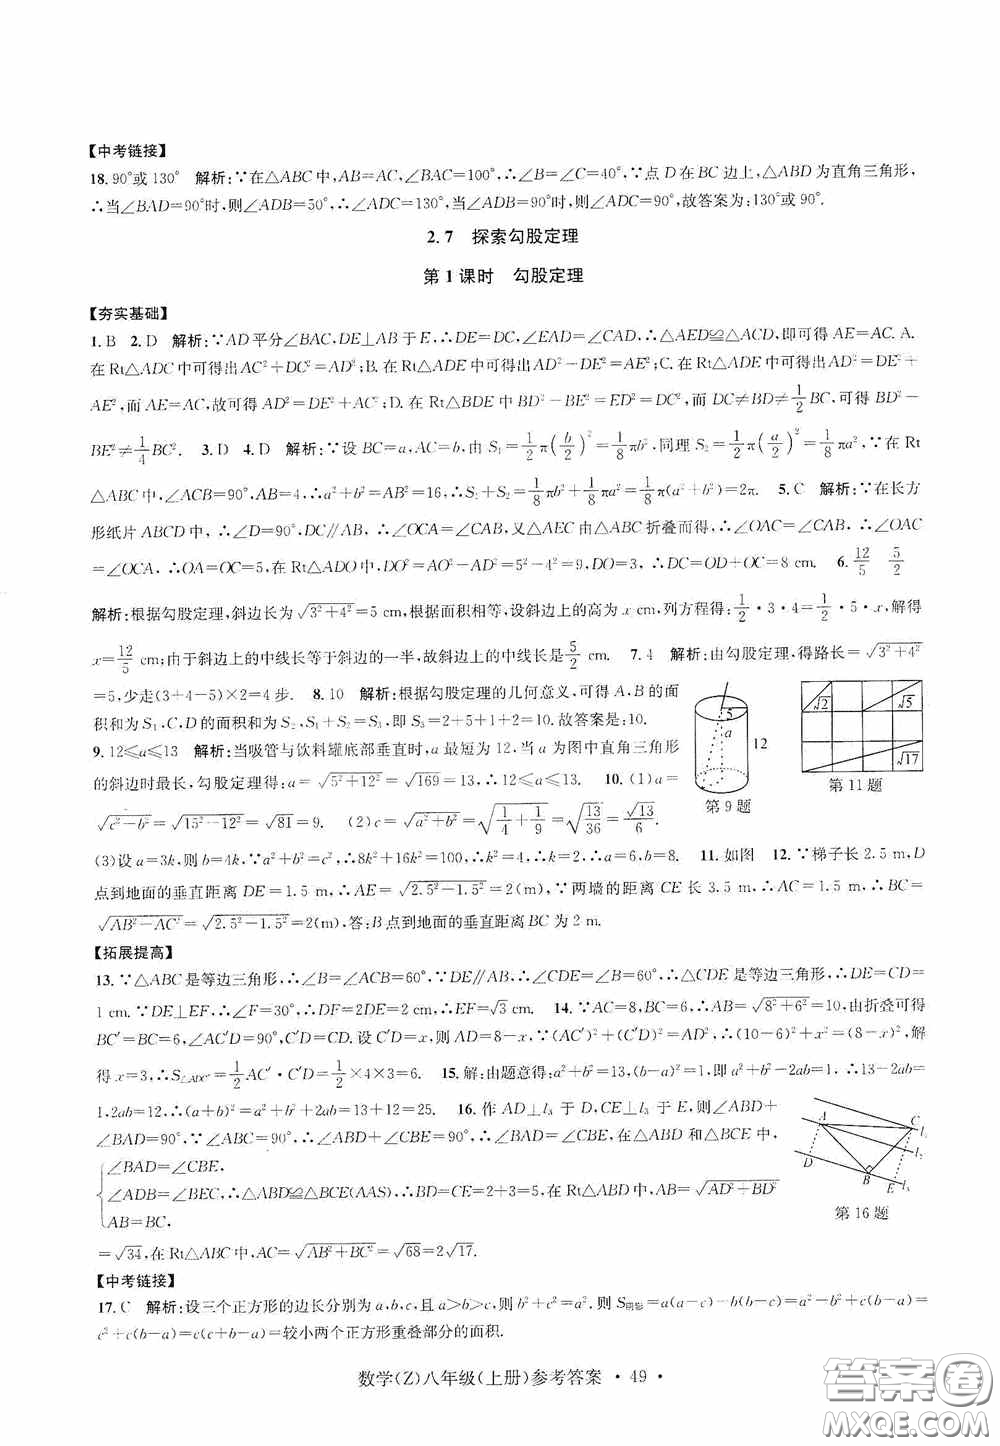 【中考链接】
18.90°或130°　解析:∵在△ABC中,AB=AC,∠BAC=100°,∴∠B=∠C=40°,∵点D在BC边上,△ABD为直角三角形,
∴当∠BAD=90°时,则∠ADB=50°,∴∠ADC=130°,当∠ADB=90°时,则∠ADC=90°,故答案为:130°或90°.
2.7　探索勾股定理
第1课时　勾股定理
【夯实基础】
1.B　2.D　解析:∵AD平分∠BAC,DE⊥AB于E,∴DE=DC,∠EAD=∠CAD,∴△AED≌△ACD,即可得AE=AC.A.
在Rt△ADC中可得出AC²+DC²=AD²;B.在Rt△ADE中可得出AD²-DE²=AE²;C.在Rt△ADE中可得出AD²=DE²+
AE²,而AE=AC,故可得AD²=DE²+AC²;D.在Rt△BDE中BD²-BE²=ED²=DC²,而DC≠BD≠1/2BC,可得BD²-
BE²≠1/4BC².　3.D　4.D　解析:∵设BC=a,AC=b,由S₁=1/2π(b/2)²=1/8πb².同理S₂=1/2π(a/2)²=1/8πa²,∵在Rt
△ABC中,∠ACB=90°,AB=4,∴a²+b²=AB²=16,∴S₁+S₂=1/8πb²+1/8πa²=1/8π(a²+b²)=2π.　5.C　解析:∵在长方
形纸片ABCD中,∴∠D=90°,DC∥AB,∴∠OCA=∠CAB,又△AEC由△ABC折叠而得,∴∠OAC=∠CAB,∴∠OAC
=∠OCA,∴OA=OC=5,在Rt△ADO中,DO²=AO²-AD²=5²-4²=9,DO=3,∴DC=OD+OC=8 cm.　6.12/5　5/2
解析:根据勾股定理,斜边长为√(3²+4²)=5 cm,根据面积相等,设斜边上的高为x cm,列方程得:1/2·3·4=1/2·5·x,解得
x=12/5 cm;由于斜边上的中线长等于斜边的一半,故斜边上的中线长是5/2 cm.　7.4　解析:由勾股定理,得路长=√(3²+4²)
=5,少走(3+4-5)×2=4步.　8.10　解析:根据勾股定理的几何意义,可得A,B的面
积和为S₁,C,D的面积和为S₂,S₁+S₂=S₃,即S₃=2+5+1+2=10.故答案是:10.
9.12≤a≤13　解析:当吸管与饮料罐底部垂直时,a最短为12,当a为图中直角三角形
的斜边时最长,勾股定理得:a=√(5²+12²)=√169=13,∴12≤a≤13.　10.(1)a=
√(c²-b²)=√(15²-12²)=√81=9.　(2)c=√(a²+b²)=√(1/4+1/9)=√(13/36)=√13/6.
5
a
12
第9题
√2
√5
√17
第11题
(3)设a=3k,则b=4k,∵a²+b²=c²,∴8k²+16k²=100,∴k²=4,∴k=2,∴a=6,b=8.　11.如图　12.∵梯子长2.5 m,D
点到地面的垂直距离DE=1.5 m,∴AE=√(2.5²-1.5²)=2(m),∵两墙的距离CE长3.5 m,∴AC=1.5 m,∴BC=
√(AB²-AC²)=√(2.5²-1.5²)=2(m),答:B点到地面的垂直距离BC为2 m.
【拓展提高】
13.∵△ABC是等边三角形,∴∠B=∠ACB=60°,∵DE∥AB,∴∠CDE=∠B=60°,∴△CDE是等边三角形,∴DE=CD=
1 cm.∵DE⊥EF,∴∠F=30°,∴DF=2DE=2 cm,∴EF=√3 cm　14.∵AC=8,BC=6,∴AB=√(8²+6²)=10,由折叠可得
BC′=BC=6,∠AC′D=90°,C′D=CD.设C′D=x,则AD=8-x,∵(AC′)²+(C′D)²=AD²,∴(10-6)²+x²=(8-x)²,解
得x=3,∴S△ADC′=1/2AC′·C′D=1/2×4×3=6.　15.解:由题意得:a²+b²=13,(b-a)²=1,∴a²+b²-2ab=1,∴13-2ab=
1,2ab=12,∴(a+b)²=a²+b²+2ab=13+12=25.　16.作AD⊥l₃于D,CE⊥l₃于E,则∠ABD+
∠BAD=90°,∵∠ABC=90°,∴∠ABD+∠CBE=90°,∴∠BAD=∠CBE,在△ABD和△BCE中,
∠BAD=∠CBE,
∠ADB=∠BEC,∴△ABD≌△BCE(AAS),∴BD=CE=2+3=5,在Rt△ABD中,AB=√(AD²+BD²)
AB=BC,
=√34,在Rt△ABC中,AC=√(AB²+BC²)=√68=2√17.
A
C
l₁
l₂
D
B
E
l₃
第16题
【中考链接】
17.C　解析:设三个正方形的边长分别为a,b,c,且a>b>c,则b²+c²=a².则S阴影=a(a-c)-b(b-c)=a²-b²+c(b-a)=
c²+c(b-a)=c(c+b-a)=较小两个正方形重叠部分的面积.
数学(Z)八年级(上册)参考答案 · 49 ·
答案圈
MXQE.COM